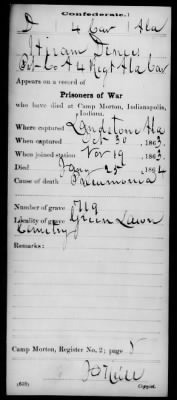 Confederate.
D 4 Cav Ala
Hiram Denes
Pvt Co A 4 Regt Ala Cav
Appears on a record of
Prisoners of War
who have died at Camp Morton, Indianapolis,
Indiana.
Where captured Ala
When captured Oct 30, 1863.
When joined station Nov 19, 1863.
Died Jany 25, 1864
Cause of death Pneumonia
Number of grave 719
Locality of grave Green Lawn
Cemetry
Remarks:
Camp Morton, Register No. 2; page
(639)
Copyist.